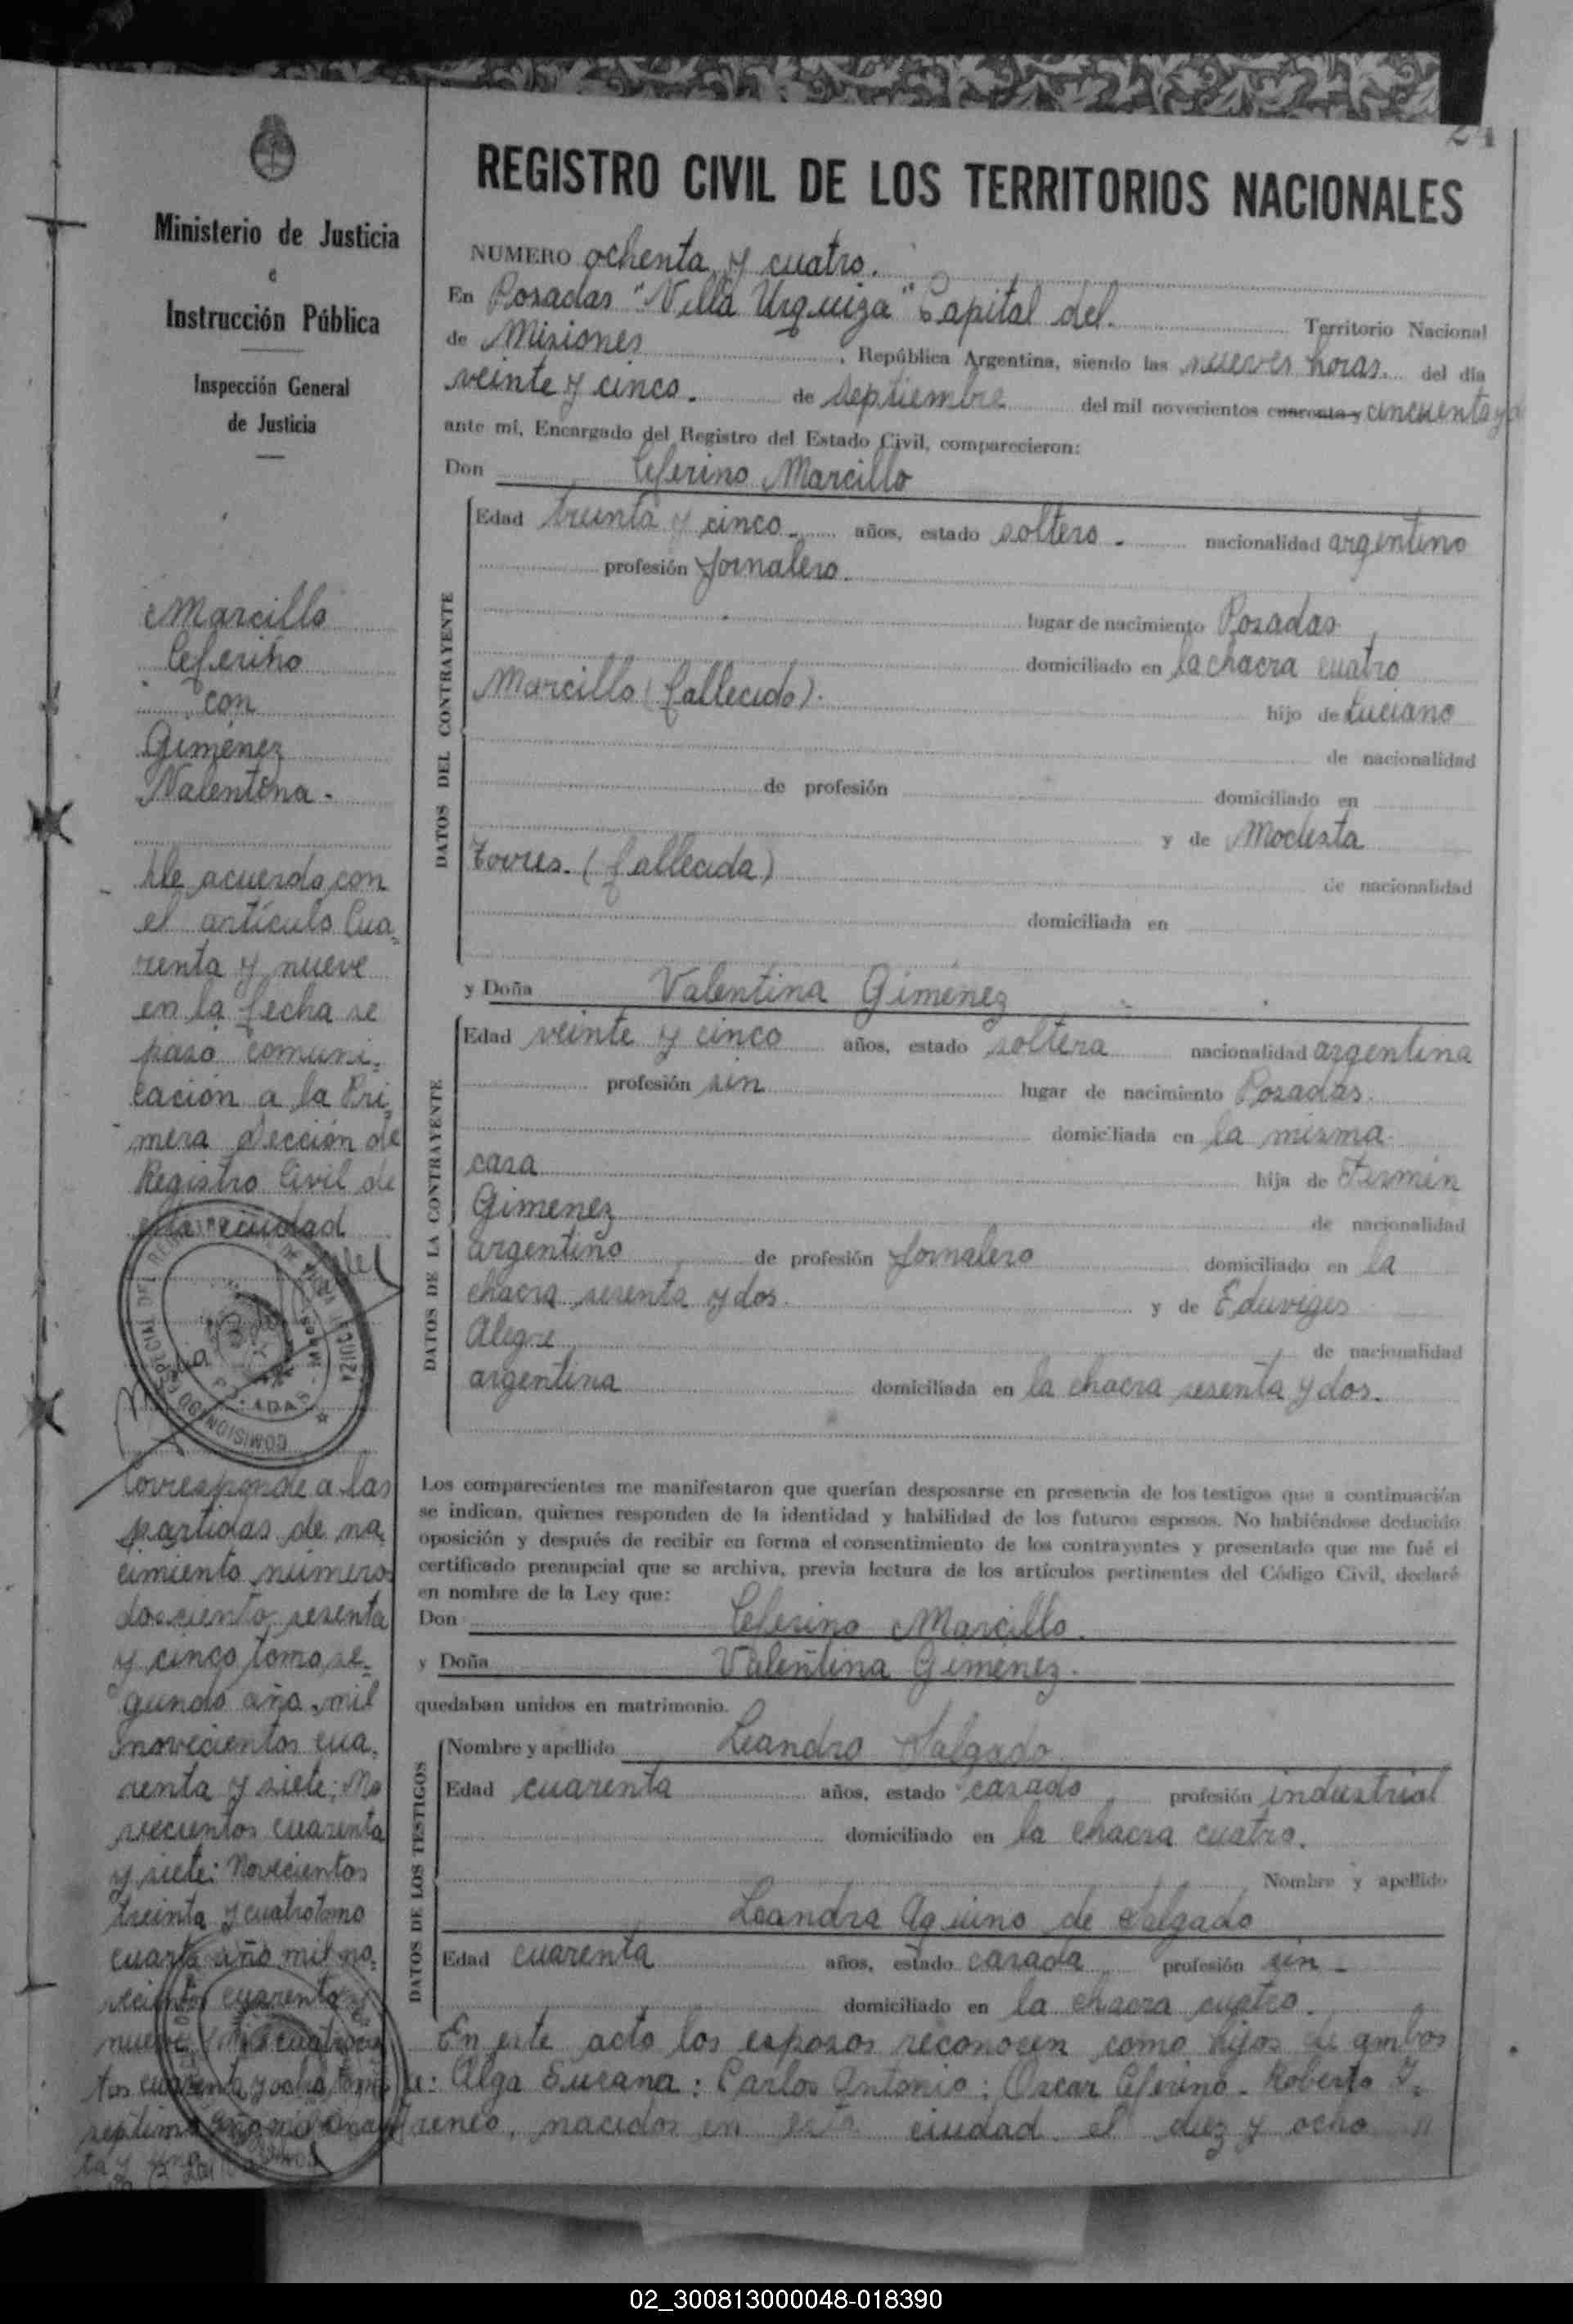 24
REGISTRO CIVIL DE LOS TERRITORIOS NACIONALES
Ministerio de Justicia
e
Instrucción Pública
Inspección General
de Justicia
NUMERO ochenta y cuatro.
En Posadas "Villa Urquiza" Capital del Territorio Nacional
de Misiones, República Argentina, siendo las nueves horas. del día
veinte y cinco. de septiembre del mil novecientos cuarenta y cincuenta y
ante mí, Encargado del Registro del Estado Civil, comparecieron:
Don Ceferino Marcillo
DATOS DEL CONTRAYENTE
Edad treinta y cinco años, estado soltero. nacionalidad argentino
profesión jornalero.
lugar de nacimiento Posadas
domiciliado en la chacra cuatro
Marcillo (fallecido). hijo de Luciano
de nacionalidad
de profesión domiciliado en
y de Modesta
Torres. (fallecida) de nacionalidad
domiciliada en
y Doña Valentina Gimenez
DATOS DE LA CONTRAYENTE
Edad veinte y cinco años, estado soltera nacionalidad argentina
profesión sin lugar de nacimiento Posadas.
domiciliada en la misma
casa hija de Fermin
Gimenez de nacionalidad
argentino de profesión jornalero domiciliado en la
chacra sesenta y dos. y de Eduviges
Alegre de nacionalidad
argentina domiciliada en la chacra sesenta y dos.
Los comparecientes me manifestaron que querían desposarse en presencia de los testigos que a continuación
se indican, quienes responden de la identidad y habilidad de los futuros esposos. No habiéndose deducido
oposición y después de recibir en forma el consentimiento de los contrayentes y presentado que me fué el
certificado prenupcial que se archiva, previa lectura de los artículos pertinentes del Código Civil, declaré
en nombre de la Ley que:
Don Ceferino Marcillo.
y Doña Valentina Gimenez.
quedaban unidos en matrimonio.
DATOS DE LOS TESTIGOS
Nombre y apellido Leandro Salgado
Edad cuarenta años, estado casado profesión industrial
domiciliado en la chacra cuatro.
Nombre y apellido
Leandra Aquino de Salgado
Edad cuarenta años, estado casada profesión sin
domiciliado en la chacra cuatro.
En este acto los esposos reconocen como hijos de ambos
a: Olga Susana: Carlos Antonio: Oscar Ceferino. Roberto I
reneo, nacidos en esta ciudad el diez y ocho
Marcillo
Ceferino
con
Gimenez
Valentina.
De acuerdo con
el artículo Cua
renta y nueve
en la fecha se
paso comuni
cación a la Pri
mera Sección de
Registro Civil de
esta ciudad
Corresponde a las
partidas de na
cimiento números
dosciento sesenta
y cinco tomo se
gundo año mil
novecientos cua
renta y siete: No
vecientos cuarenta
y siete: Novecientos
treinta y cuatro tomo
cuarto año mil no
vecientos cuarenta y
nueve
septimo
02_300813000048-018390